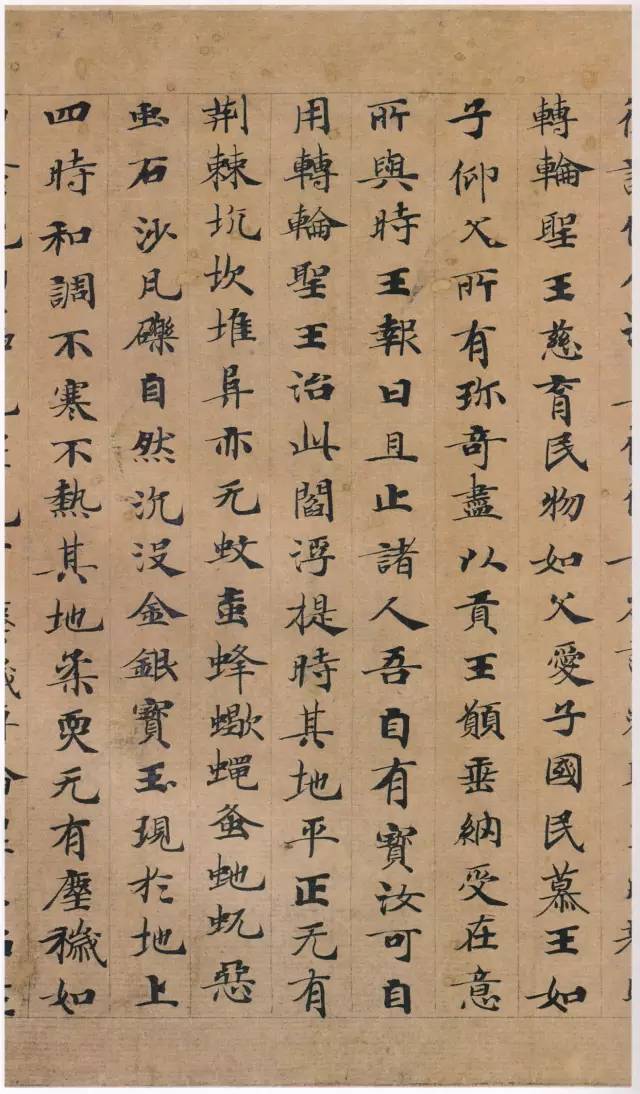 轉輪聖王慈育民物如父愛子國民慕王如
子仰父所有珎奇盡以貢王願垂納受在意
所與時王報曰且止諸人吾自有寶汝可自
用轉輪聖王治此閻浮提時其地平正无有
荆棘坑坎堆阜亦无蚊䖟蜂蝎蠅蚤虵蚖惡
虫石沙凡礫自然沉没金銀寶玉現於地上
四時和調不寒不熱其地柔耎无有塵穢如